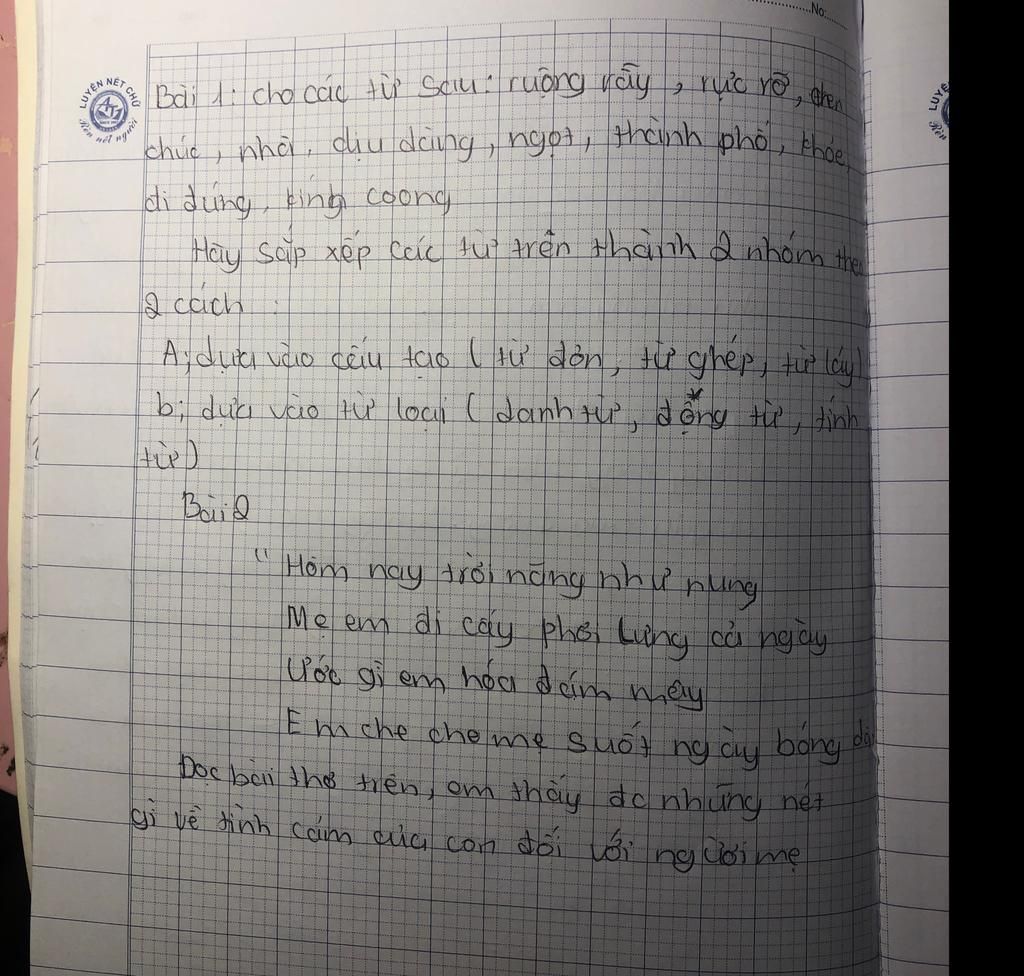 No:
LUYỆN NÉT CHỮ
Rèn nết người
Bài 1: cho các từ sau: ruộng rẫy, rực rỡ, chen
chúc, nhà, dịu dàng, ngọt, thành phố, khoe,
đi đứng, kính coong
Hãy sắp xếp các từ trên thành 2 nhóm theo
2 cách:
A; dựa vào cấu tạo (từ đơn, từ ghép, từ láy)
b; dựa vào từ loại (danh từ, động từ, tính
từ)
Bài 2
"Hôm nay trời nắng như nung
Mẹ em đi cấy phơi lưng cả ngày
Ước gì em hóa đám mây
Em che cho mẹ suốt ngày bóng
Đọc bài thơ trên, em thấy đc những nét
gì về tình cảm của con đối với người mẹ